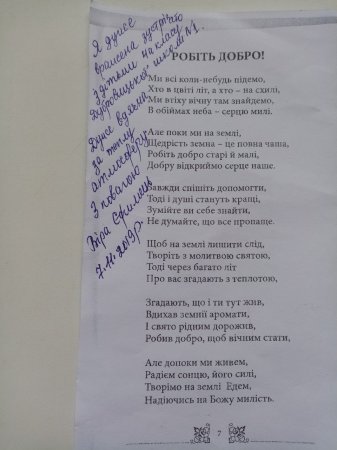 Я дуже
вражена зустріччю
з дітьми на класу
Дубровицької школи №1.
Дуже вдячна
за теплу
атмосферу.
З повагою
Віра
7.11.2019р.
РОБІТЬ ДОБРО!
Ми всі коли-небудь підемо,
Хто в цвіті літ, а хто – на схилі,
Ми втіху вічну там знайдемо,
В обіймах неба – серцю милі.
Але поки ми на землі,
Щедрість земна – це повна чаша,
Робіть добро старі й малі,
Добру відкриймо серце наше.
Завжди спішіть допомогти,
Тоді і душі стануть кращі,
Зумійте ви себе знайти,
Не думайте, що все пропаще.
Щоб на землі лишити слід,
Творіть з молитвою святою,
Тоді через багато літ
Про вас згадають з теплотою,
Згадають, що і ти тут жив,
Вдихав земнії аромати,
І свято рідним дорожив,
Робив добро, щоб вічним стати,
Але допоки ми живем,
Радієм сонцю, його силі,
Творімо на землі Едем,
Надіючись на Божу милість.
7